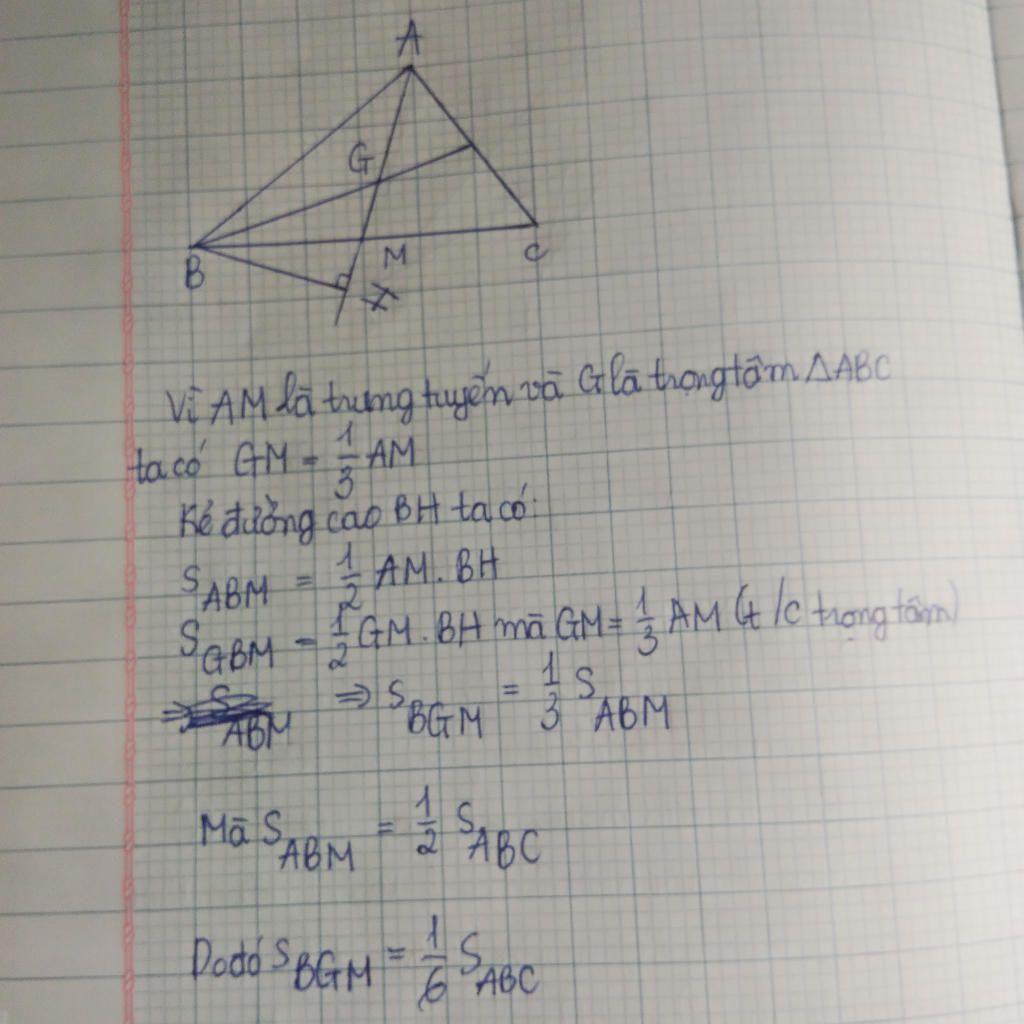 A
G
B
M
C
H
Vì AM là trung tuyến và G là trọng tâm ΔABC
ta có GM = 1/3 AM
Kẻ đường cao BH ta có:
S_ABM = 1/2 AM . BH
S_GBM = 1/2 GM . BH mà GM = 1/3 AM (t/c trọng tâm)
⇒ S_BGM = 1/3 S_ABM
Mà S_ABM = 1/2 S_ABC
Do đó S_BGM = 1/6 S_ABC